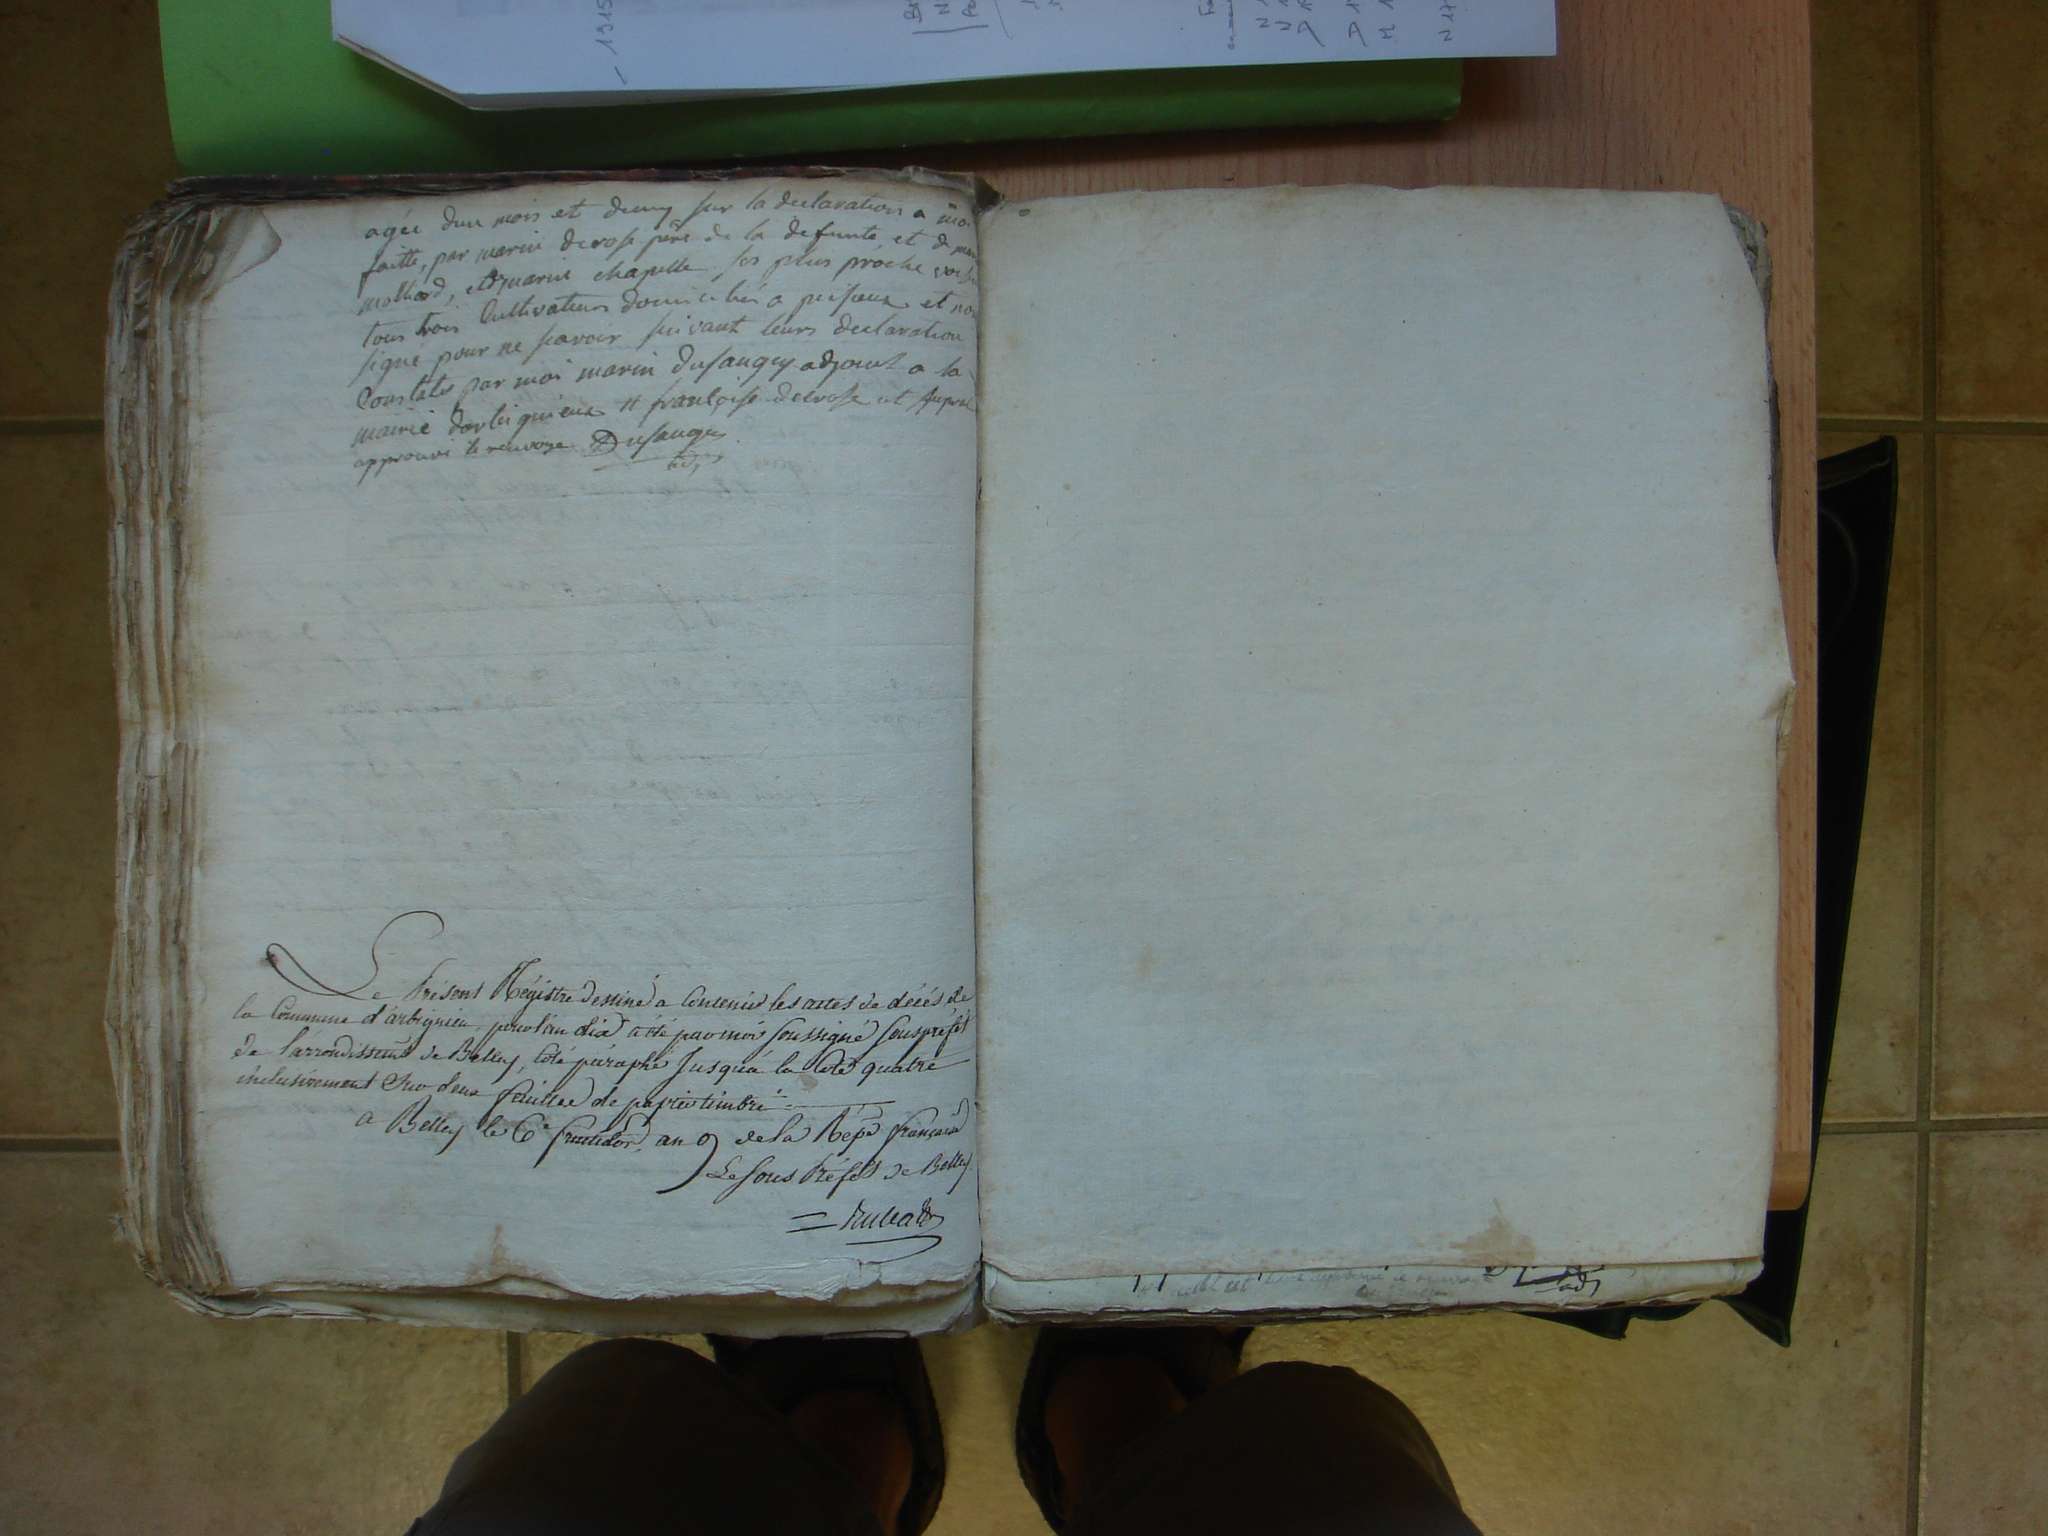 1915
agée dun mois et demy sur la declaration a moi
faitte, par marin derose père de la defunte, et de
molliard, et marin chapelle ses plus proche voisin
tous trois Cultivateurs domicilies a peisieux et non
signé pour ne scavoir suivant leurs declaration
Constaté par moi marin Dusaugey adjoint a la
mairie darbignieux françoise derose et
approuvé le renvoye Dusaugey
adj
Le Présent Régistre destiné a Contenir les actes de décés de
la Commune d'arbignieu, pour l'an dix a été par moi soussigné sous préfet
de l'arrondissemt de Belley, Coté paraphé Jusqu'à la Cote quatre
inclusivement Sur deux feuilles de papier timbré
a Belley le 6e fructidor, an 9 de la Répe française
Le Sous Préfet de Belley
adj